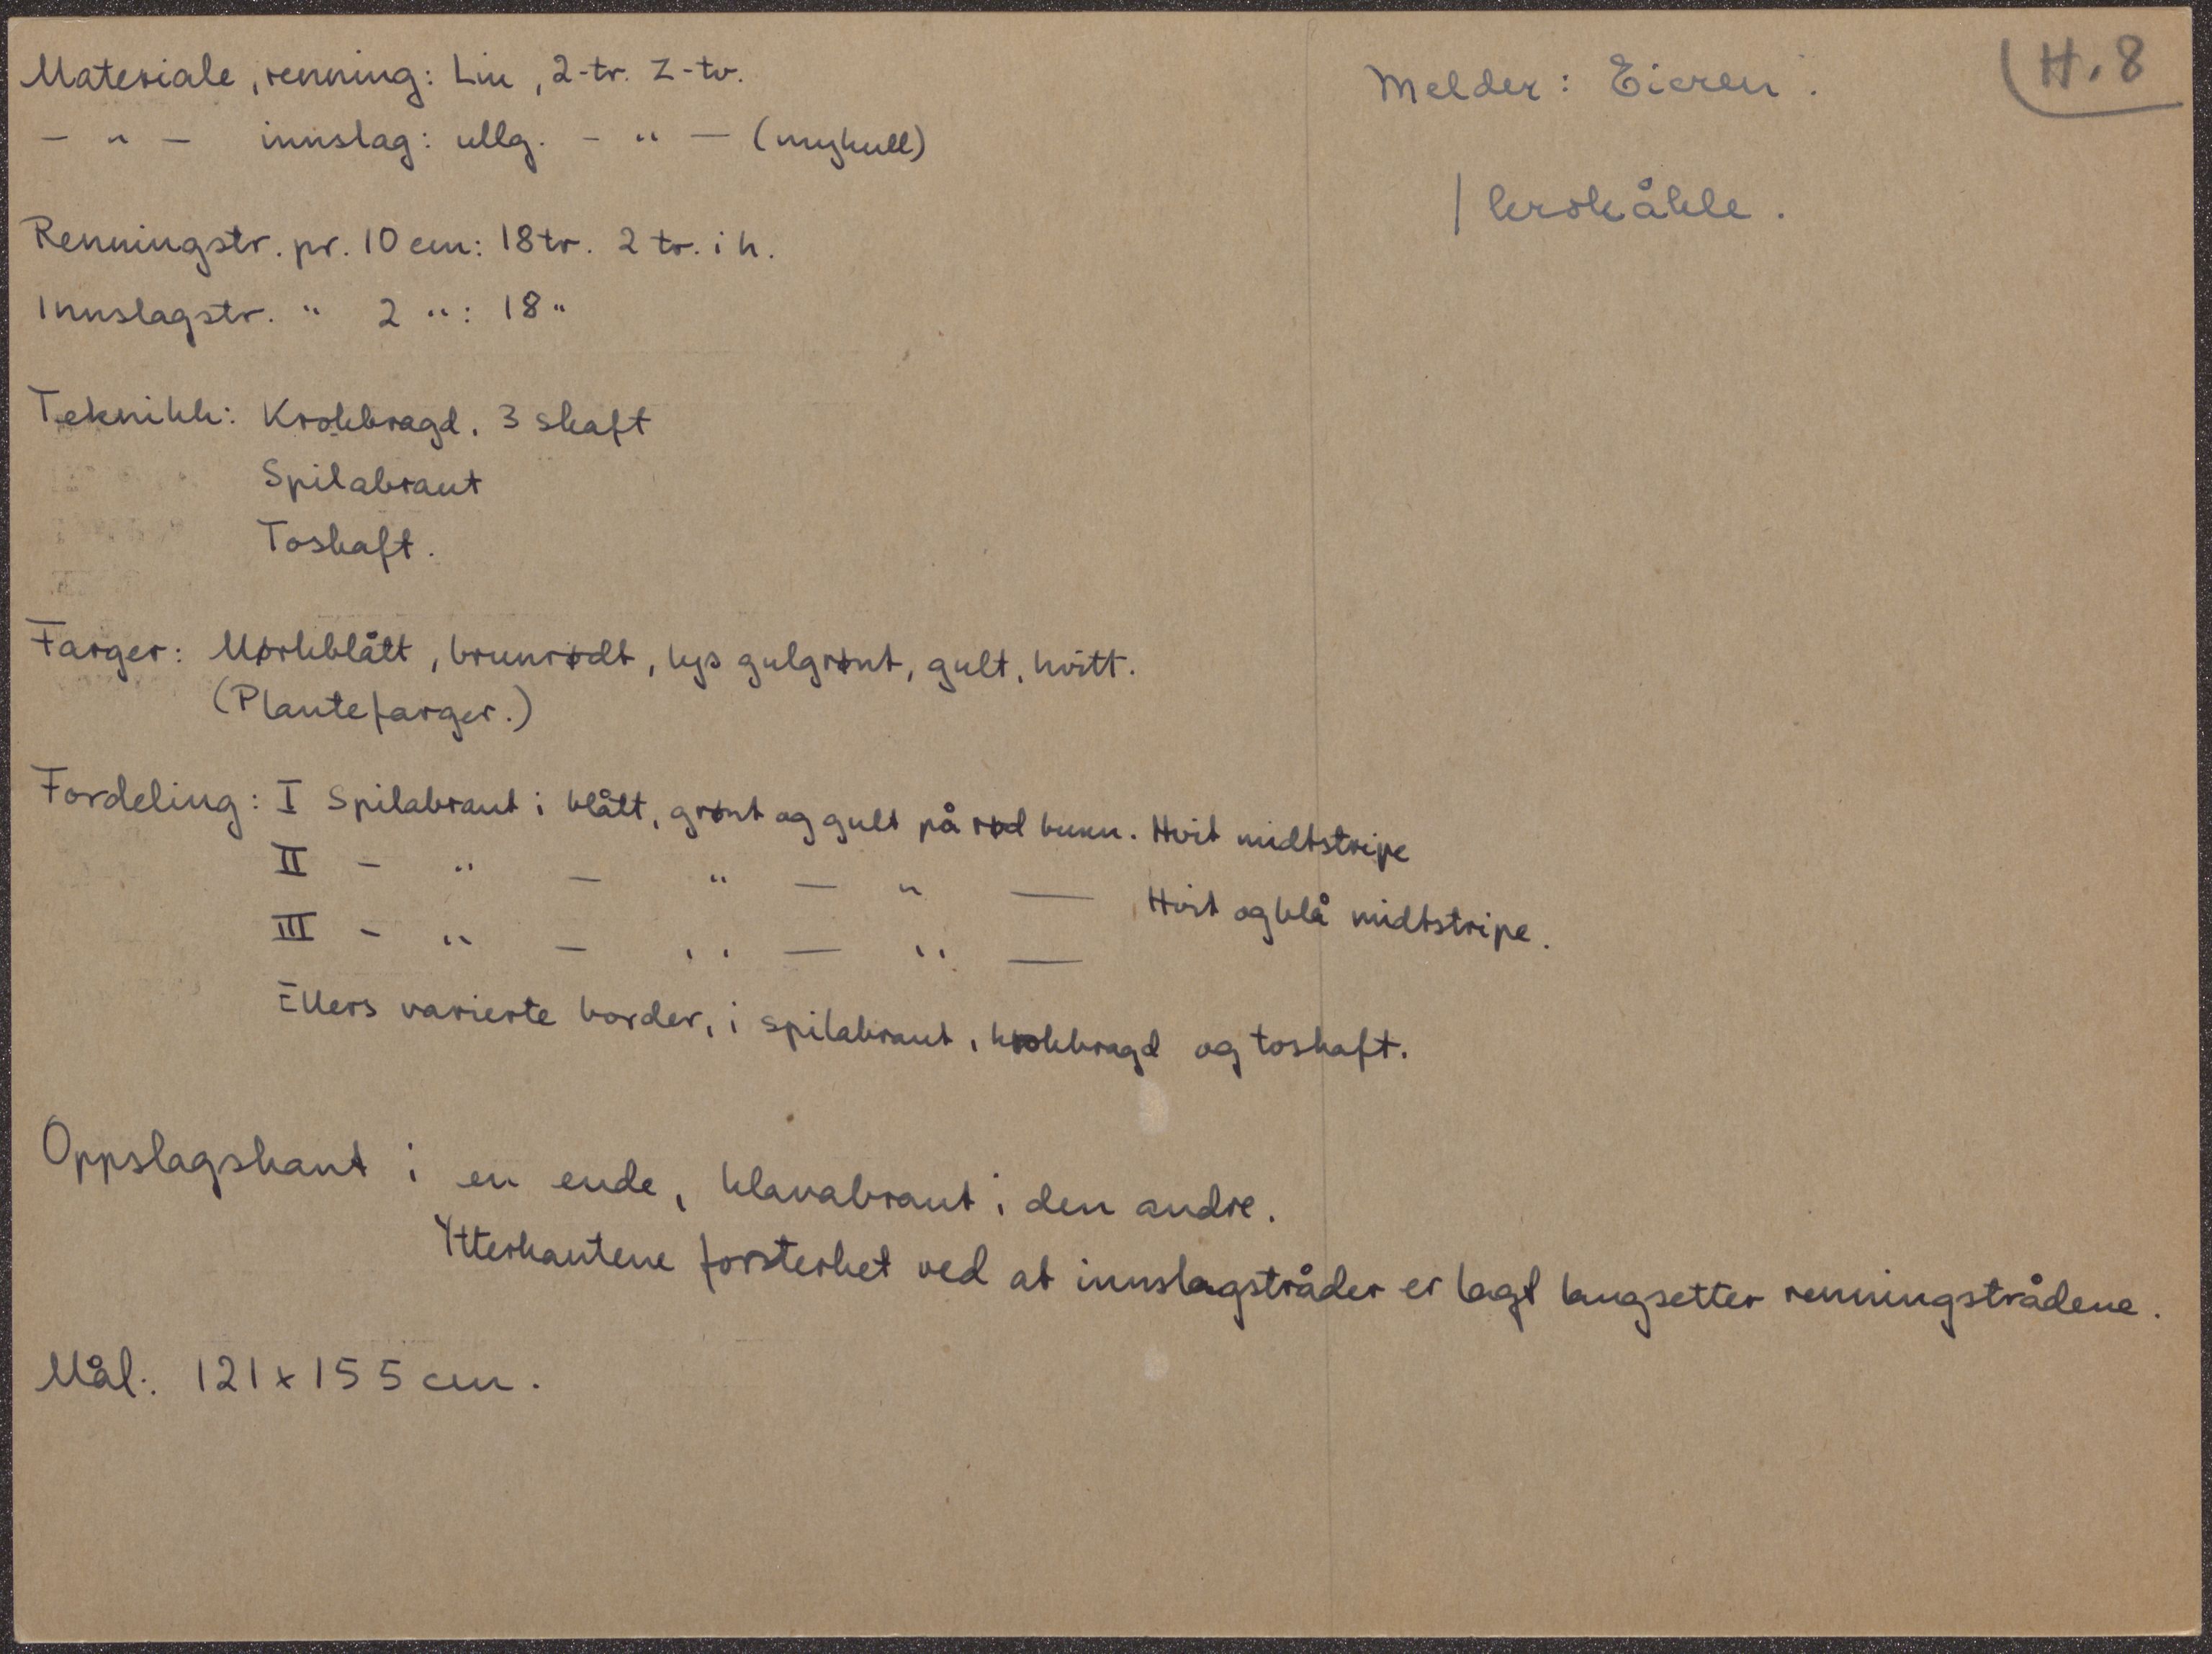 Materiale, renning: Lin, 2-tr. Z-tv.
- " - innslag: ullg. - " - (mykull)
Renningstr. pr. 10 cm: 18 tr. 2 tr. i h.
Innslagstr. " 2 ": 18 "
Teknikk: Krokbragd. 3 skaft
Spilabraut
Toskaft.
Farger: Mørkblått, brunrødt, lys gulgrønt, gult, hvitt.
(Plantefarger.)
Fordeling: I Spilabraut i blått, grønt og gult på rød bunn. Hvit midtstripe
II - " - " - " - Hvit og blå midtstripe.
III - " - " - " -
Ellers varierte border, i spilabraut, krokbragd og toskaft.
Oppslagskant i en ende, klavabraut i den andre.
Ytterkantene forsterket ved at innslagstråder er lagt langsetter renningstrådene.
Mål: 121 x 155 cm.
Melder: Eieren.
/ krokåkle.
H. 8